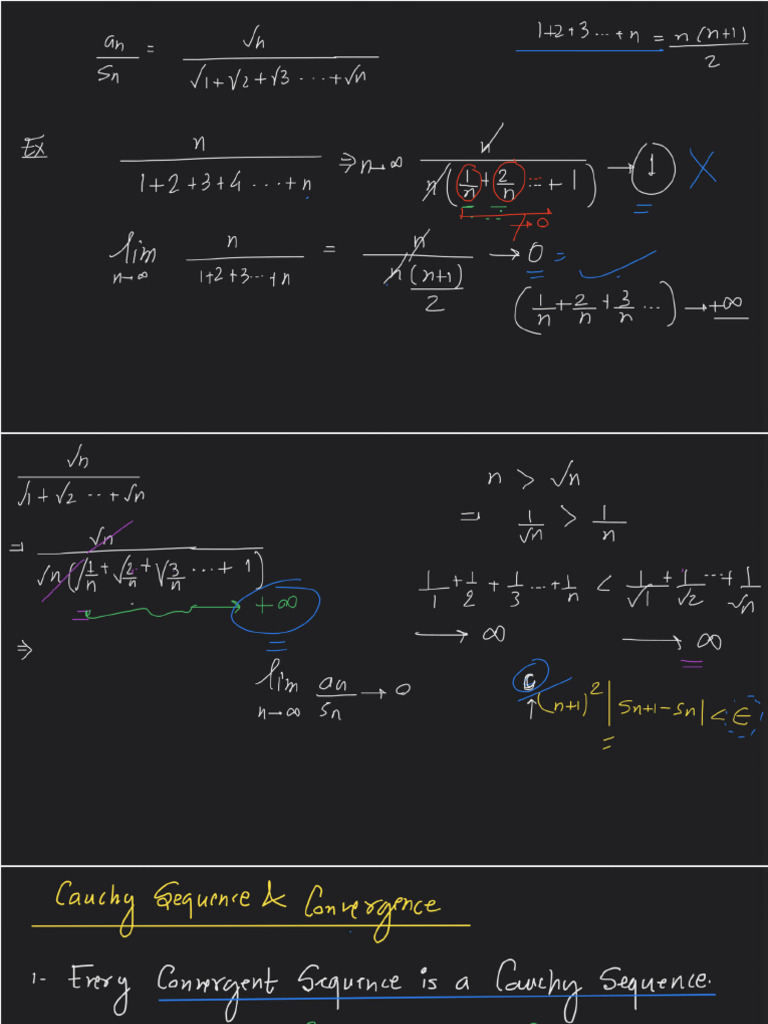 an/Sn = √n/(√1+√2+√3...+√n)
1+2+3...+n = n(n+1)/2
Ex n/(1+2+3+4...+n) ⇒ n→∞ n/(n(1/n+2/n...+1)) → 1 X
→0
lim n→∞ n/(1+2+3...+n) = n/(n(n+1)/2) → 0 =
(1/n+2/n+3/n...) → +∞
√n/(√1+√2...+√n)
⇒ √n/(√n(√1/n+√2/n+√3/n...+1))
→ +∞
⇒
lim n→∞ an/Sn → 0
n > √n
⇒ 1/√n > 1/n
1/1+1/2+1/3...+1/n < 1/√1+1/√2...+1/√n
→ ∞ → ∞
(n+1)²|Sn+1-Sn| < ∈
Cauchy Sequence & Convergence
1- Every Convergent Sequence is a Cauchy Sequence.